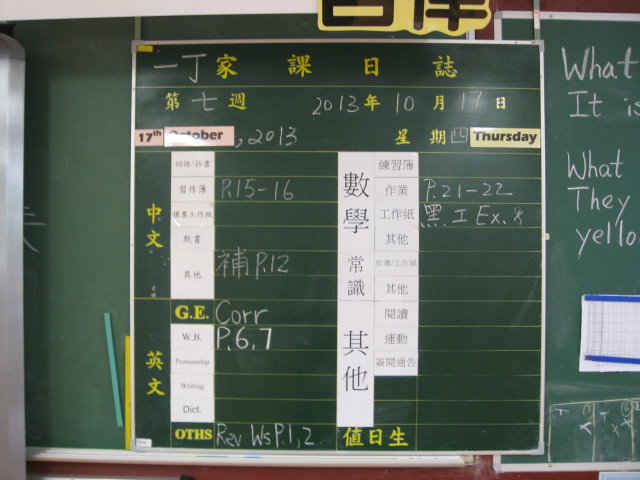 自律
一丁家課日誌
第七週 2013年10月17日
17th October, 2013 星期四 Thursday
中文
詞語/抄書
習作簿 P.15-16
課業工作紙
默書
其他 補 P.12
英文
G.E. Corr
W.B. P.6,7
Penmanship
Writing
Dict.
OTHS Rev Ws P.1,2
數學
練習簿
作業 P.21-22
工作紙 黑工Ex.8
其他
常識
作業/工作紙
其他
其他
閱讀
運動
簽閱通告
值日生
What
It is
What
They
yello